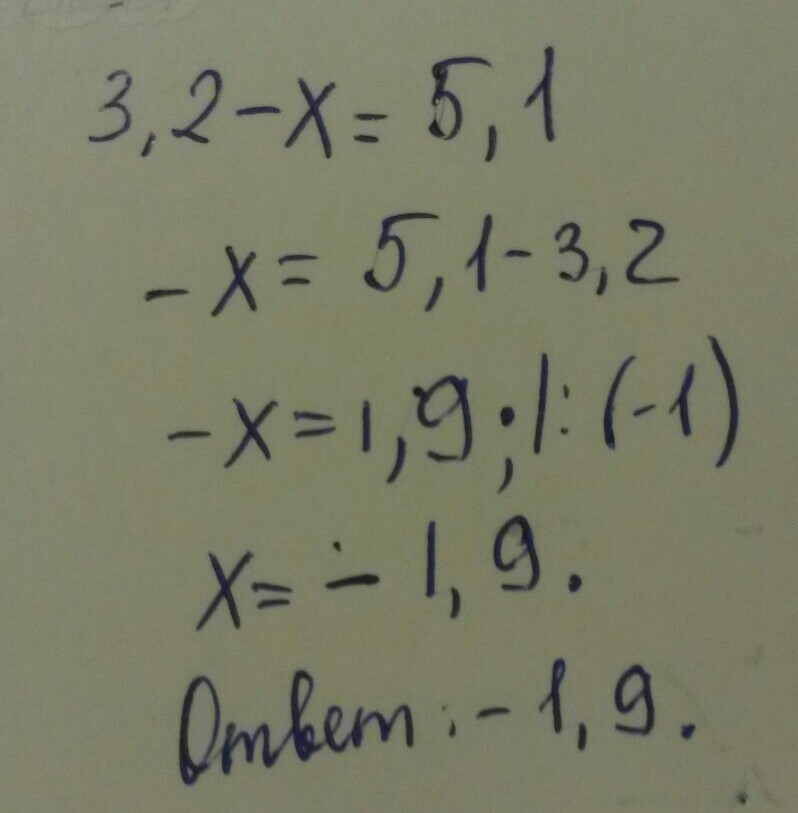 3,2-x=5,1
-x=5,1-3,2
-x=1,9;|:(-1)
x=-1,9.
Ответ:-1,9.